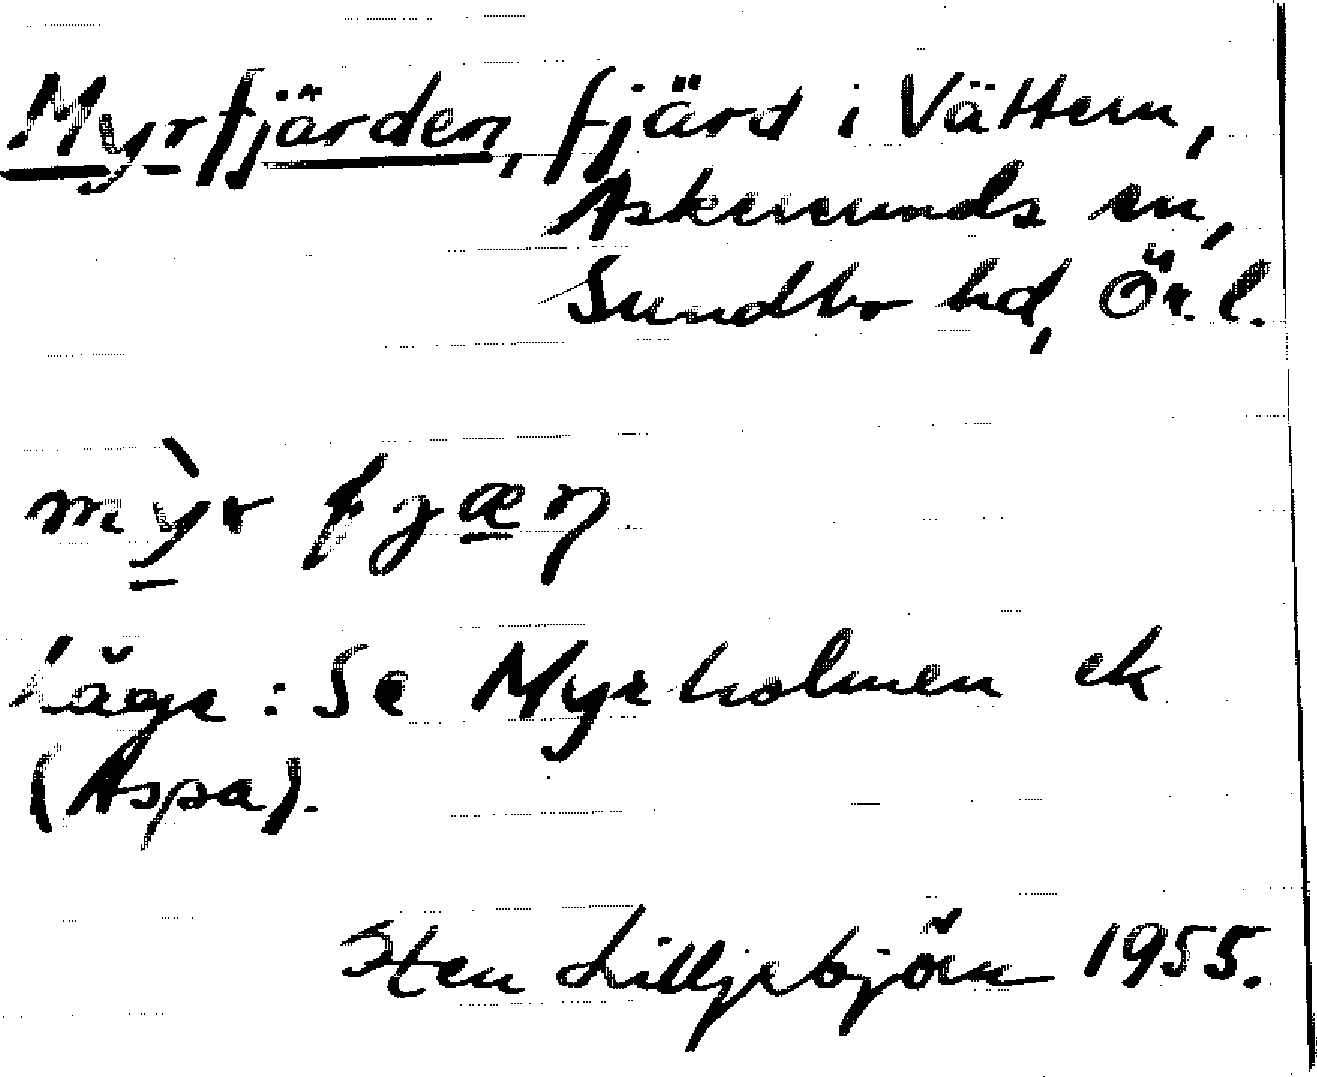 Myrfjärden, fjärd i Vättern,
Askersunds en,
Sundbo hd, Ör. l.
mỳ̱r fjæ̱ŋ
Läge: Se Myrholmen ek
(Aspa).
Sten Lilljebjörn 1955.